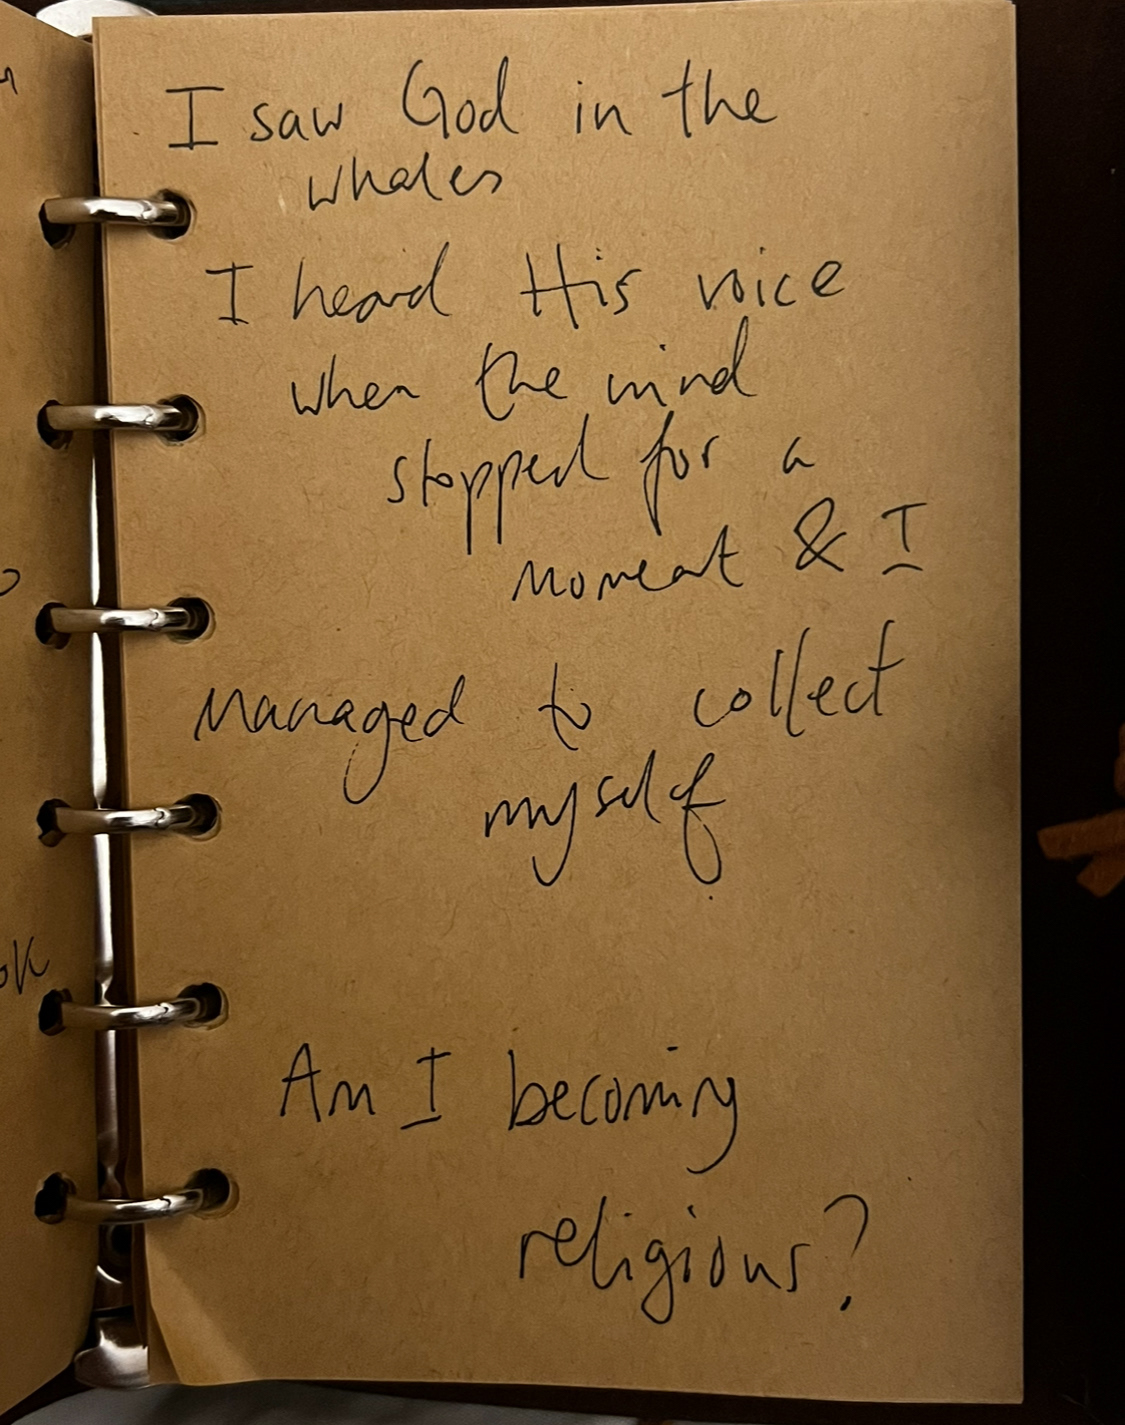 I saw God in the
whales
I heard His voice
when the mind
stopped for a
moment & I
managed to collect
myself
Am I becoming
religious?
ok